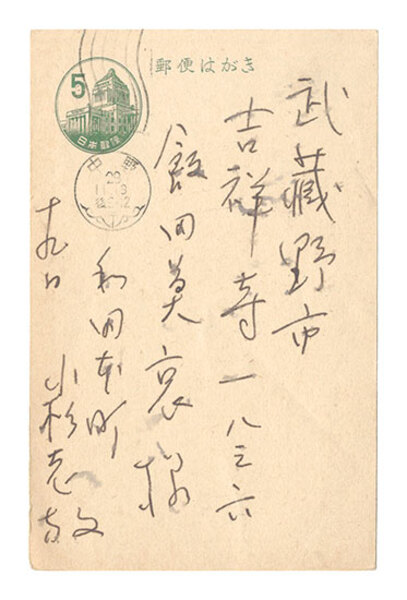 郵便はがき
5
日本郵便
中野
29
武藏野市
吉祥寺一八三六
飯田莫哀様
和田本町
小杉
十九日